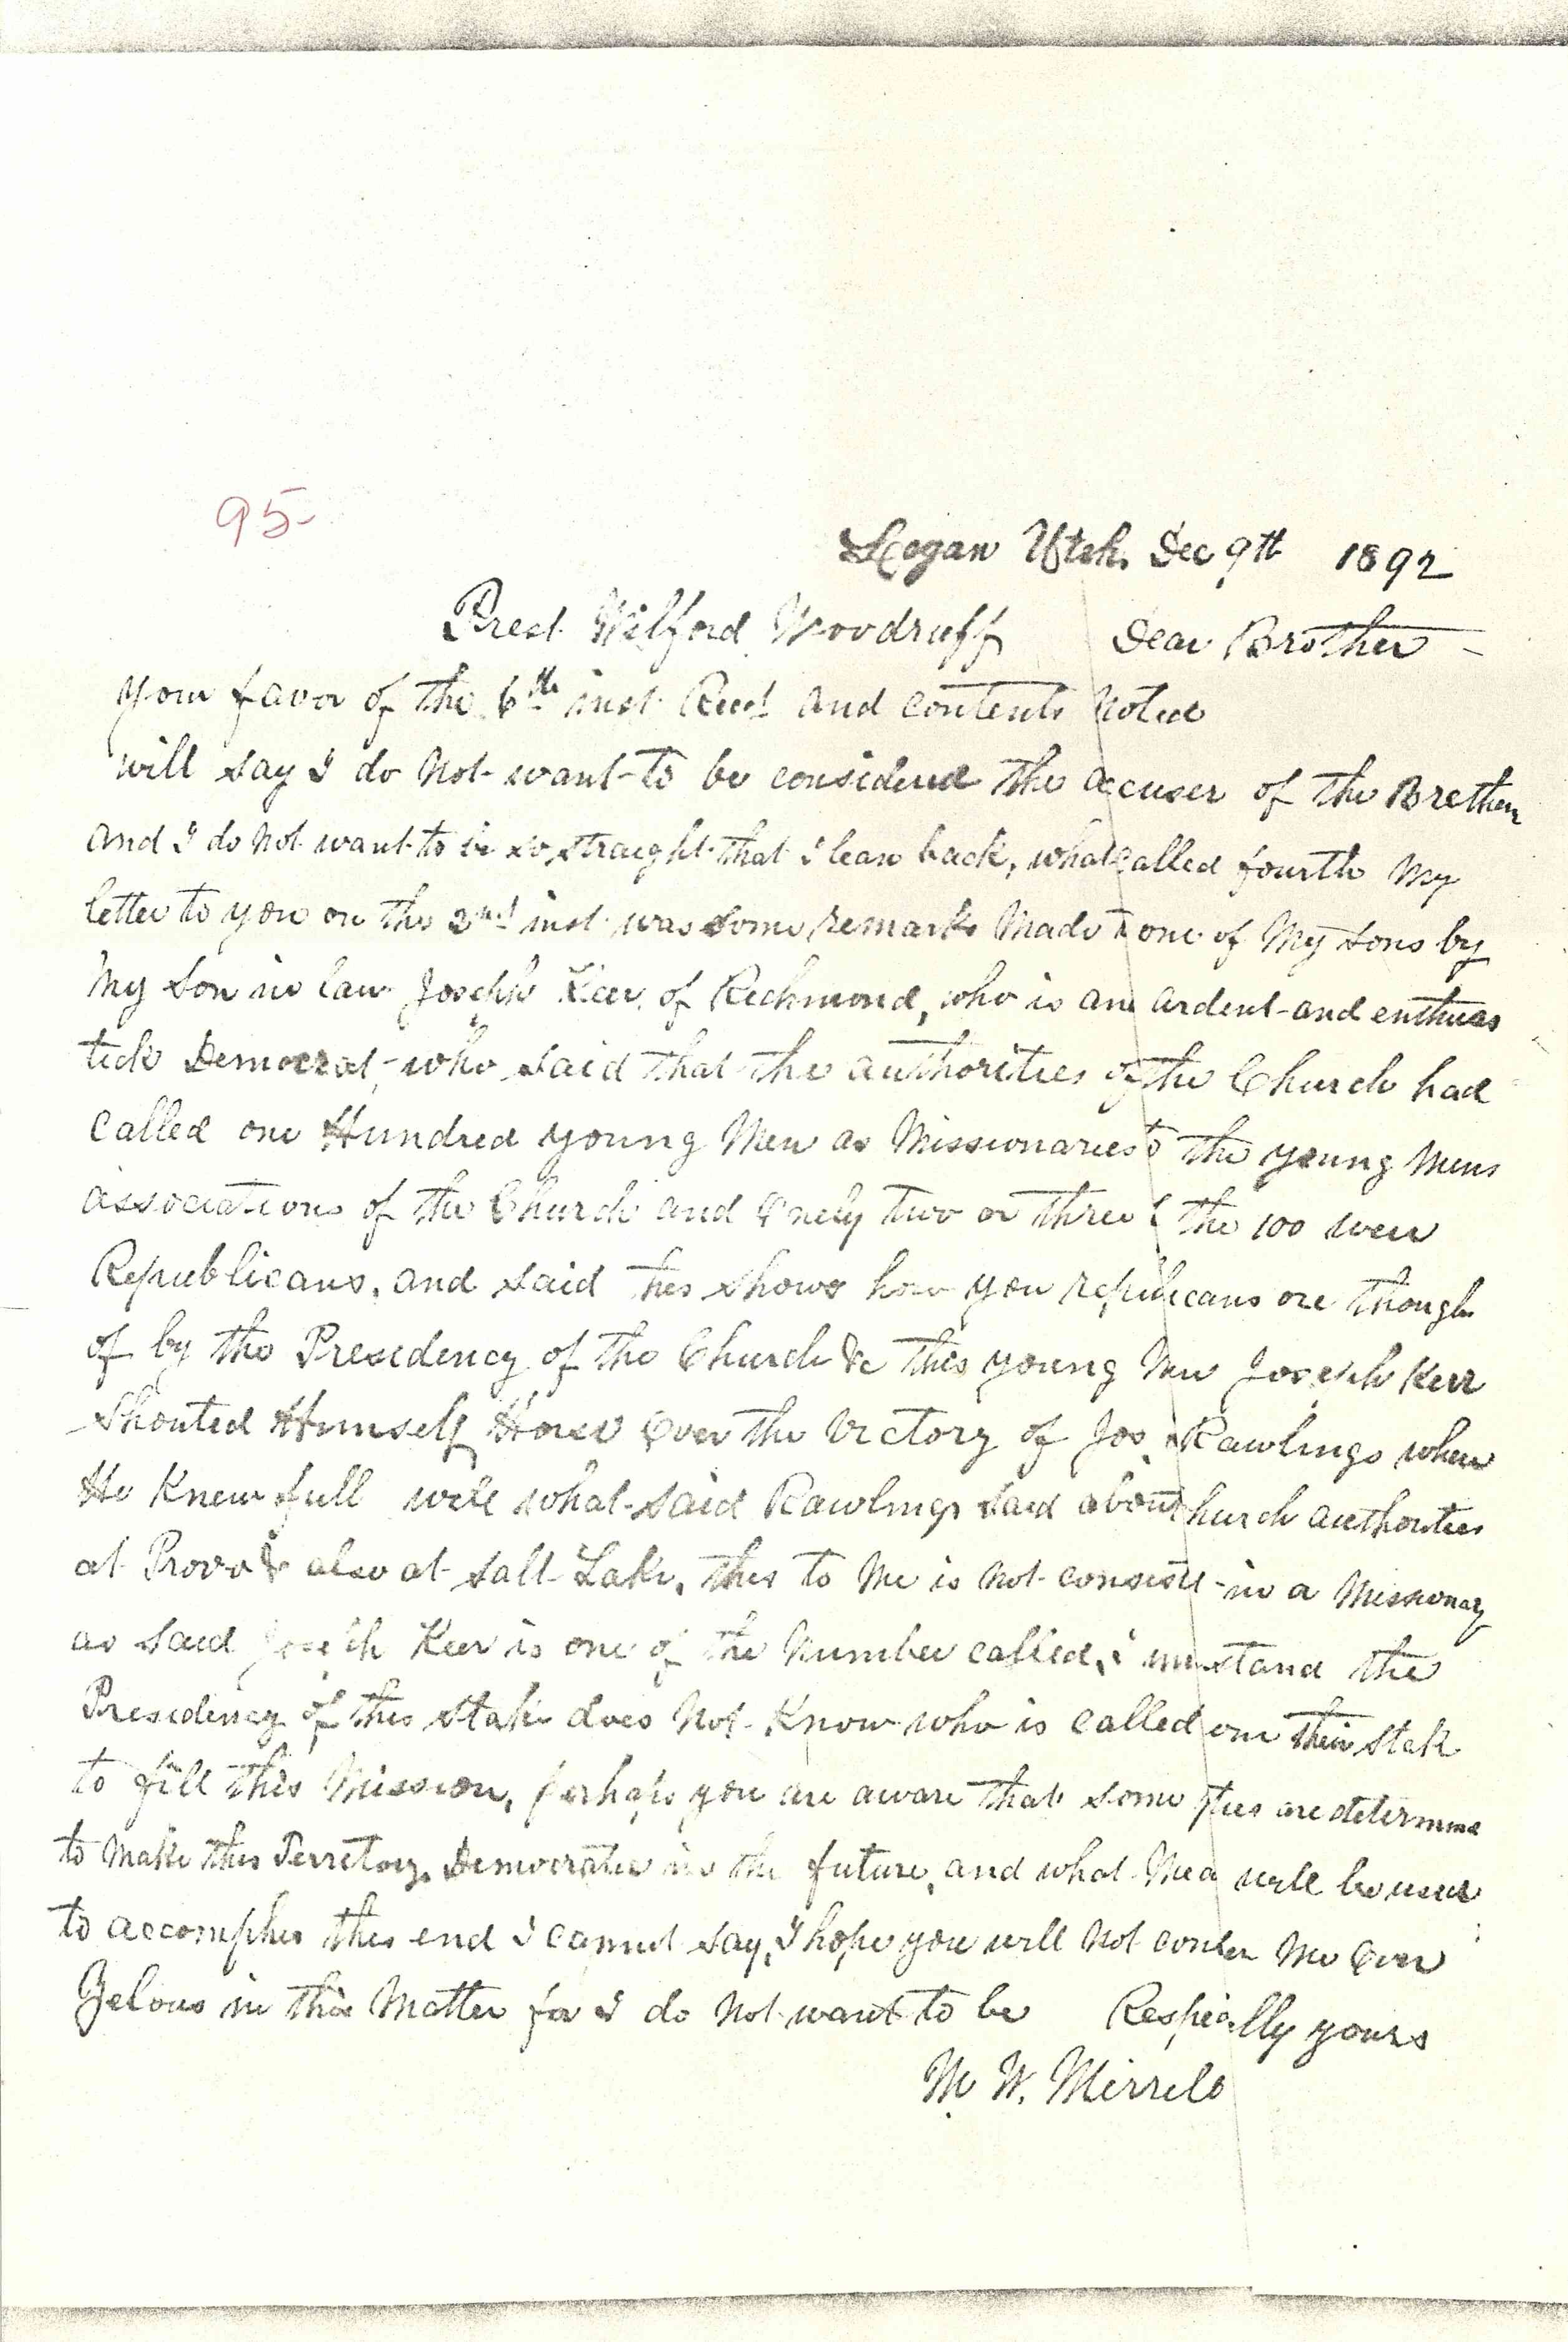 95
Logan Utah. Dec 9th 1892
Prest. Wilford Woodruff Dear Brother
your favor of the 6th inst. Recd and contents Noted
will say I do Not want to be considered the accuser of the Brethern
and I do Not want to be so straight that I lean back, what called fourth My
letter to you on the 2nd inst was some remarks Made to one of My sons by
My Son in law Joseph Kerr of Richmond, who is an ardent and enthuas
tick Democrat, who said that the authorities of the Church had
Called one Hundred young Men as Missionaries to the young Mens
associations of the Church and Onely two or three the 100 were
Republicans, and said this shows how you republicans are though
of by the Presidency of the Church &c this young Man Joseph Kerr
Shouted Himself Horse Over the Victory of Jos Rawlings when
He Knew full well what said Rawlings said about church authorities
at Provo & also at Salt Lake, this to Me is Not consist in a Missionary
as said Joseph Kerr is one of the Number called, i un stand the
Presidency of this Stake does Not Know who is called on their Stak
to fill this Mission, perhaps you are aware that some ties are determine
to Make this Territory Democratic in the future, and what Mea will be used
to accomplish this end I cannot say, I hope you will Not consider Me Over
Zelous in this Matter for I do Not want to be Respially yours
M. W. Merrill